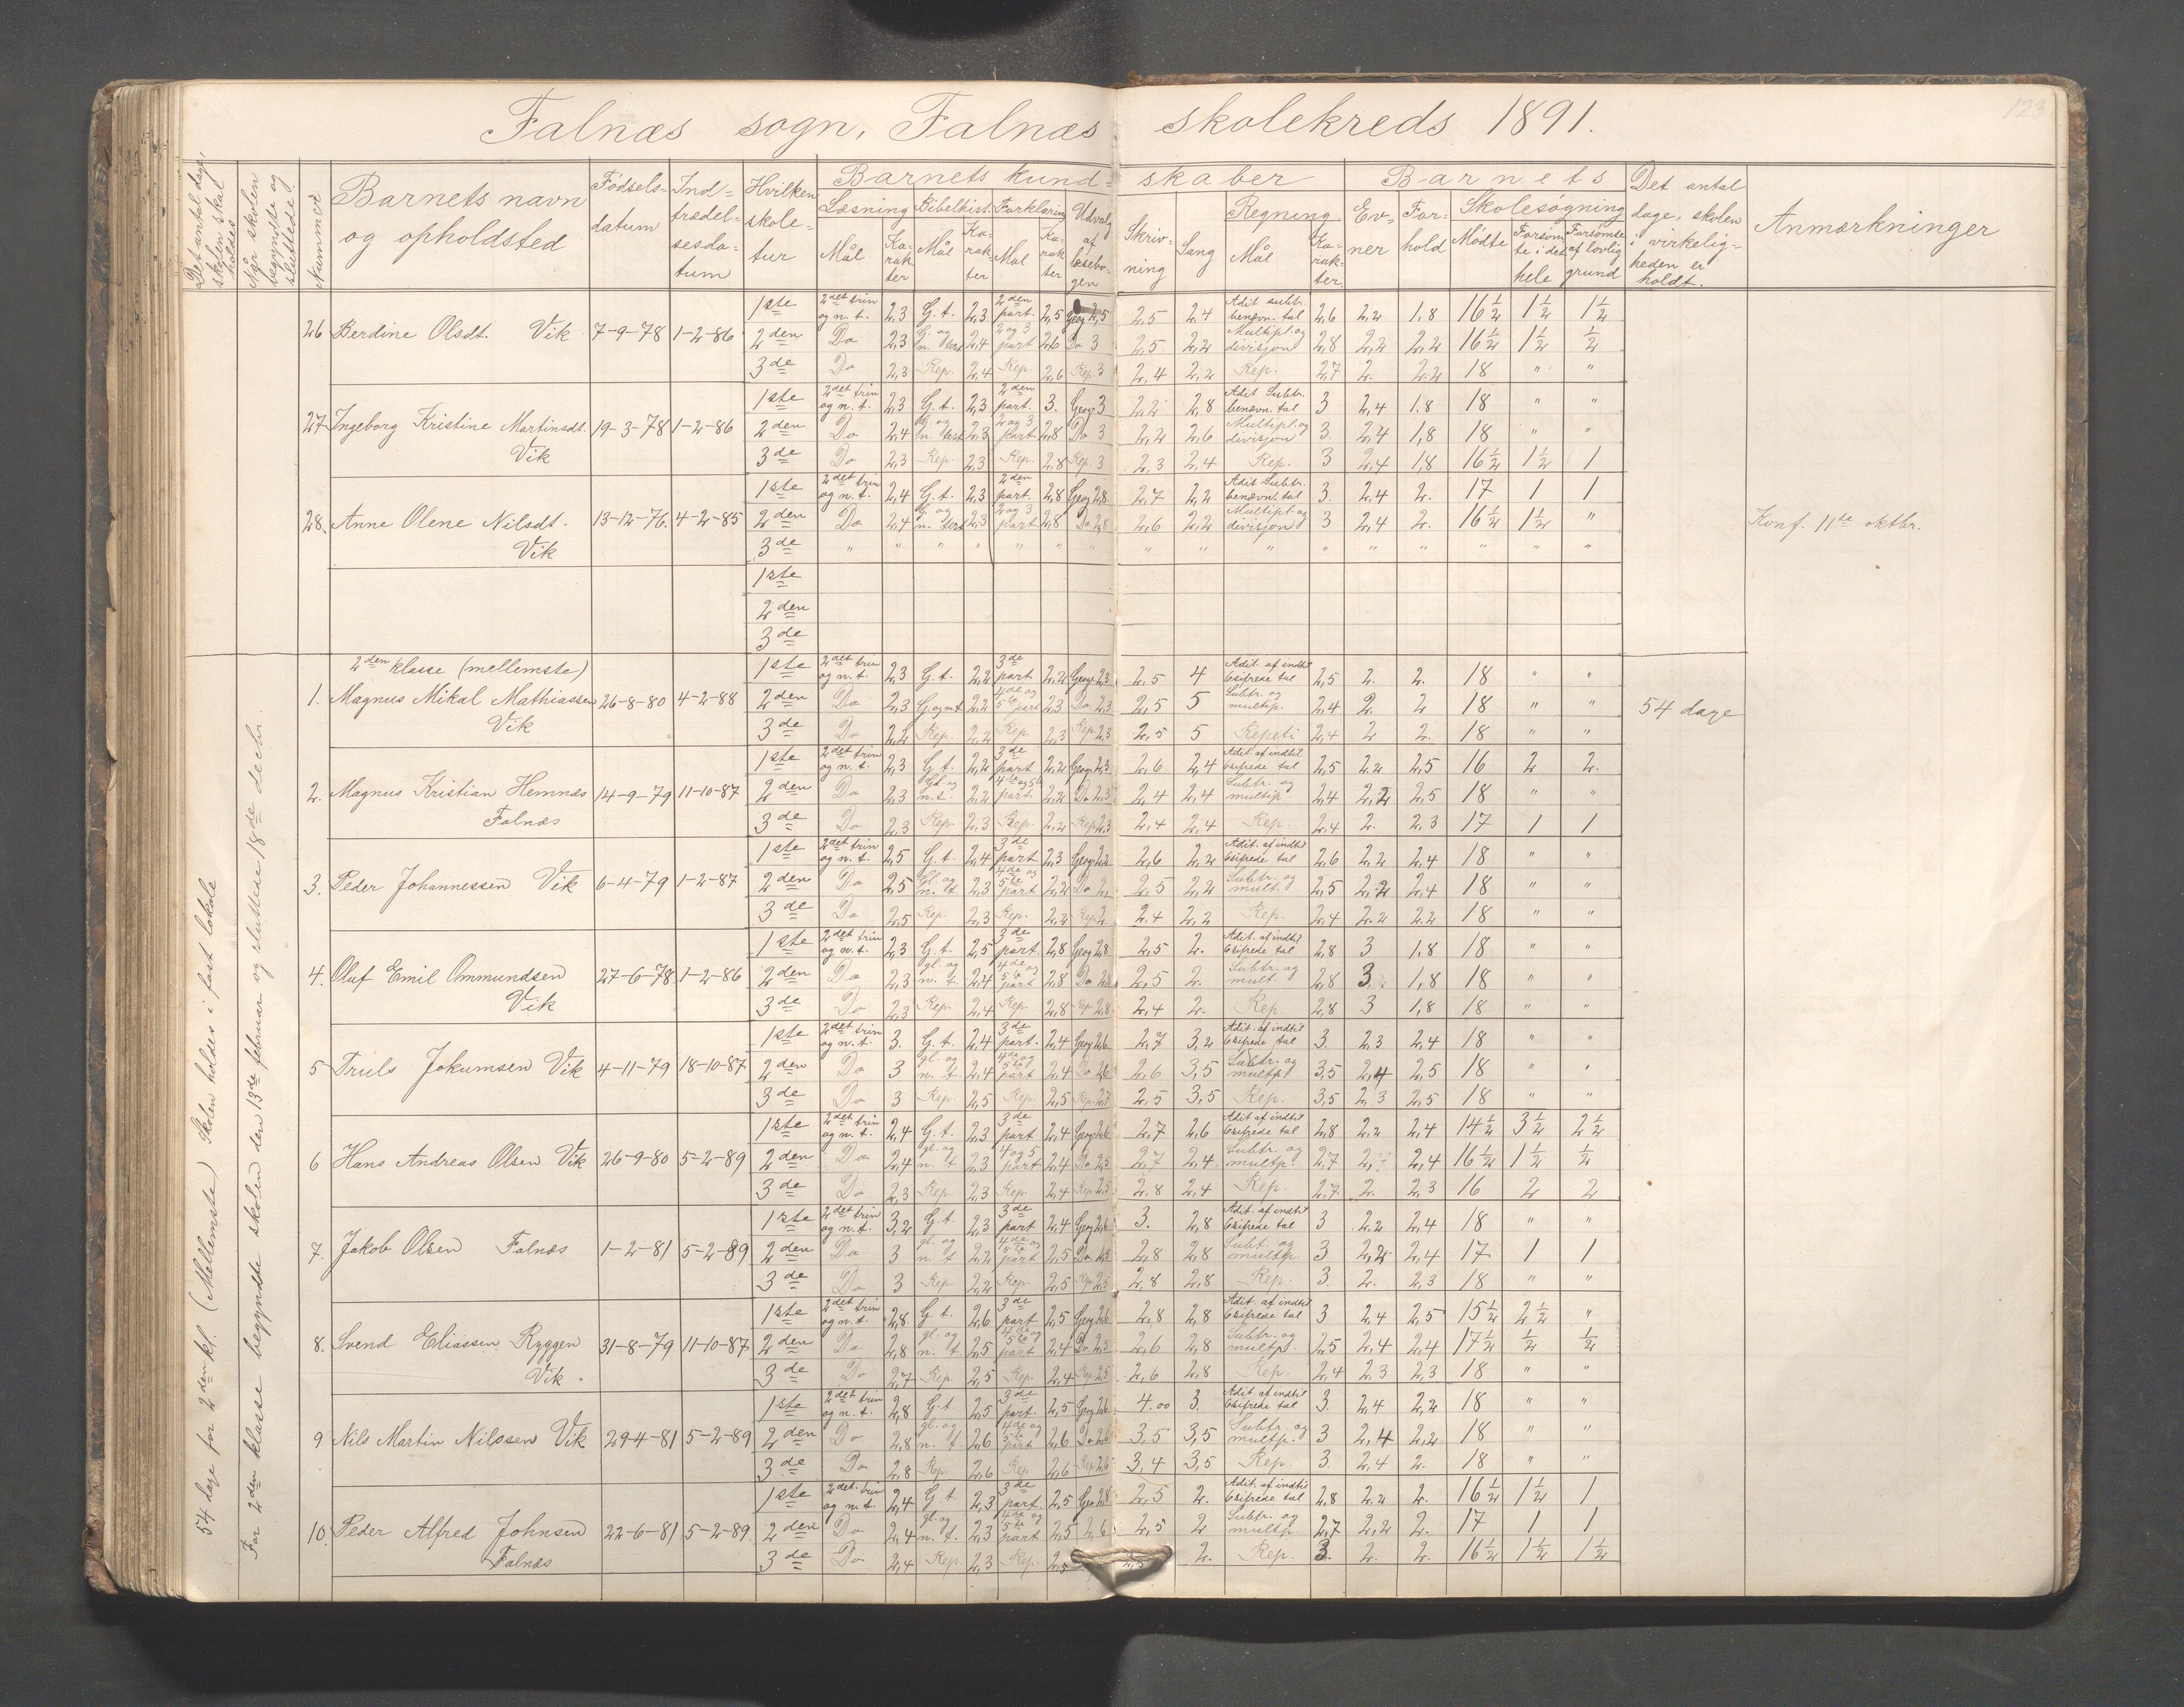 Falnæs sogn, Falnæs skolekreds 1891.
123
Det antal dage, skolen skal holdes
Når skolen begyndte og sluttede.
Nummer
Barnets navn og opholdsted
Fødsels-datum
Ind-trædel-sesda-tum
Hvilken skole-tur
Barnets kund-skaber
Læsning Mål Ka-rak-ter
Bibelhist. Mål Ka-rak-ter
Forklaring Mål Ka-rak-ter
Udvalg af læsebo-gen
Skriv-ning
Sang
Regning Mål Ka-rak-ter.
Barnets
Ev-ner
For-hold
Skolesøgning Mødte Forsøm-te i det hele Forsømte af lovlig grund
Det antal dage, skolen i virkelig-heden er holdt.
Anmærkninger
26 Berdine Olsdt. Vik 7-9-78 1-2-86
1ste 2det trin og n. t. 2,3 G. t. 2,3 2den part. 2,5 Geog 2,5 2,5 2,4 Adit subtr. benævn. tal 2,6 2,2 1,8 16½ 1½ 1½
2den Do 2,3 G. og n. test 2,4 2 og 3 part 2,6 Do 3 2,5 2,2 Multipl. og divisjon 2,8 2,2 2,2 16½ 1½ ½
3de Do 2,3 Rep. 2,4 Rep. 2,6 Rep. 3 2,4 2,2 Rep. 2,7 2. 2,2 18 " "
27 Ingeborg Kristine Martinsdt. Vik 19-3-78 1-2-86
1ste 2det trin og n. t. 2,3 G. t. 2,3 2den part. 3. Geog 3 2,2 2,8 Adit Subtr. benævn. tal 3 2,4 1,8 18 " "
2den Do 2,4 G. og n. test 2,3 2 og 3 part 2,8 Do 3 2,2 2,6 Multipl. og divisjon 3. 2,4 1,8 18 " "
3de Do 2,3 Rep. 2,3 Rep. 2,8 Rep. 3 2,3 2,4 Rep. 3 2,4 1,8 16½ 1½ 1
28. Anne Olene Nilsdt. Vik 13-12-76. 4-2-85
1ste 2det trin og n. t. 2,4 G. t. 2,3 2den part. 2,8 Geog 2,8 2,7 2,2 Adit Subtr. benævn. tal 3. 2,4 2. 17 1 1
2den Do 2,4 G. og n. test 2,3 2 og 3 part 2,8 Do 2,8 2,6 2,2 Multipl. og divisjon 3 2,4 2. 16½ 1½ " Konf. 11te oktbr.
3de " " " " " " " " " " " " " " " "
1ste
2den
3de
2den klasse (mellemste)
1. Magnus Mikal Mathiassen Vik 26-8-80 4-2-88
1ste 2det trin og n. t. 2,3 G. t. 2,2 3de part 2,2 Geog 2,3 2,5 4 Adit. af indtil 6sifrede tal 2,5 2. 2. 18 " "
2den Do 2,3 G. og n. t 2,2 4de og 5te part 2,3 Do 2,3 2,5 5 Subtr. og multip. 2,4 2. 2 18 " " 54 dage
3de Do 2,2 Rep. 2,2 Rep 2,3 Rep. 2,3 2,5 5 Repeti 2,4 2 2. 18 " "
2. Magnus Kristian Hemnæs Falnæs 14-9-79 11-10-87
1ste 2det trin og n. t. 2,3 G. t. 2,2 3de part 2,2 Geog 2,3 2,6 2,4 Adit. af indtil 6sifrede tal 2,5 2,2 2,5 16 2 2.
2den Do 2,3 Gl. og n. t. 2,2 4de og 5te part 2,2 Do 2,3 2,4 2,4 Subtr. og multip. 2,4 2,2 2,5 18 " "
3de Do 2,3 Rep. 2,3 Rep. 2,2 Rep 2,3 2,4 2,4 Rep. 2,4 2. 2,3 17 1 1
3. Peder Johannessen Vik 6-4-79 1-2-87
1ste 2det trin og n. t. 2,5 G. t. 2,4 3de part 2,3 Geog 2,2 2,6 2,2 Adit. af indtil 6sifrede tal 2,6 2,2 2,4 18 " "
2den Do 2,5 Gl. og n. t 2,3 4de og 5te part 2,2 Do 2. 2,5 2,2 Subtr. og mult. 2,5 2,2 2,4 18 " "
3de Do 2,5 Rep. 2,3 Rep. 2,2 Rep 2. 2,4 2,2 Rep. 2,4 2,2 2,2 18 " "
4. Oluf Emil Ommundsen Vik 27-6-78 1-2-86
1ste 2det trin og n. t. 2,3 G. t. 2,5 3de part. 2,8 Geog 2,8 2,5 2. Adit. af indtil 6sifrede tal 2,8 3 1,8 18 " "
2den Do 2,3 gl. og n. t. 2,4 4de og 5te part 2,8 Do 2,8 2,5 2. Subtr. og mult. 2,8 3. 1,8 18 " "
3de Do 2,3 Rep. 2,4 Rep. 2,8 Rep 2,8 2,4 2. Rep. 2,8 3 1,8 18 " "
5 Truls Jokumsen Vik 4-11-79 18-10-87
1ste 2det trin og n. t. 3. G. t. 2,4 3de part. 2,4 Geog 2,6 2,7 3,2 Adit. af indtil 6sifrede tal 3. 2,3 2,4 18 " "
2den Do 3 gl. og n. t 2,4 4de og 5te part 2,4 Do 2,6 2,6 3,5 Subtr. og multp 3,5 2,4 2,5 18 " "
3de Do 3 Rep. 2,5 Rep 2,5 Rep. 2,7 2,5 3,5 Rep. 3,5 2,3 2,5 18 " "
6 Hans Andreas Olsen Vik 26-9-80 5-2-89
1ste 2det trin og n. t. 2,4 G. t. 2,3 3de part 2,4 Geog 2,6 2,7 2,6 Adit af indtil 6sifrede tal 2,8 2,2 2,4 14½ 3½ 2½
2den Do 2,4 gl. og n. t 2,3 4 og 5 part 2,4 Do 2,5 2,7 2,4 Subtr. og multp. 2,7 2, 2,4 16½ 1½ ½
3de Do 2,3 Rep. 2,3 Rep. 2,4 Rep 2,5 2,8 2,4 Rep. 2,7 2. 2,3 16 2 2
7. Jakob Olsen Falnæs 1-2-81 5-2-89
1ste 2det trin og n. t. 3,2 G. t. 2,3 3de part 2,4 Geog 2,6 3. 2,8 Adit. af indtil 6sifrede tal 3 2,2 2,4 18 " "
2den Do 3 gl. og n. t 2,2 4de og 5te part 2,5 Do 2,5 2,8 2,8 Subt. og multp. 3 2,2 2,4 17 1 1
3de Do 3 Rep. 2,2 Rep. 2,5 Rep 2,5 2,8 2,8 Rep. 3. 2. 2,3 18 " "
8. Svend Eliassen Ryggen Vik. 31-8-79 11-10-87
1ste 2det trin og n. t. 2,8 G. t. 2,6 3de part 2,5 Geog 2,6 2,8 2,8 Adit. af indtil 6sifrede tal 3 2,4 2,5 15½ 2½ "
2den Do 2,8 gl. og n. t. 2,5 4de og 5te part 2,4 Do. 2,5 2,6 2,8 Subtr. og multp. 2,5 2,4 2,4 17½ ½ ½
3de Do 2,7 Rep. 2,5 Rep. 2,4 Rep 2,5 2,6 2,8 Rep. 2,4 2,3 2,3 18 " "
9 Nils Martin Nilssen Vik 29-4-81 5-2-89
1ste 2det trin og n. t. 2,8 G. t. 2,5 3de part. 2,5 Geog 2,6 4.00 3. Adit. af indtil 6sifrede tal 3. 2,4 2,2 18 " "
2den Do 2,8 gl. og n. t. 2,6 4de og 5te part 2,6 Do 2,6 3,5 3,5 Subtr. og multp. 3 2,4 2,2 18 " "
3de Do 2,8 Rep. 2,6 Rep. 2,6 Rep 2,6 3,4 3,5 Rep. 3. 2,4 2. 18 " "
10. Peder Alfred Johnsen Falnæs 22-6-81 5-2-89.
1ste 2det trin og n. t. 2,4 G. t. 2,3 3de part. 2,5 Geo 2,8 2,5 2. Adit. af indtil 6sifrede tal 2,8 2,2 2. 16½ 1½ 1
2den Do 2,4 gl og n. t. 2,3 4de og 5te part 2,5 2,6 2,5 2 Subtr. og multp. 2,7 2,2 2. 17 1 1
3de Do 2,4 Rep. 2,3 Rep. 2,5 2. Rep. 3. 2. 2. 16½ 1½ 1½
54 dage for 2den kl. (Mellemste) Skolen holdes i fast lokale
For 2den klasse begyndte skolen den 13de februar og sluttede 18de decbr.